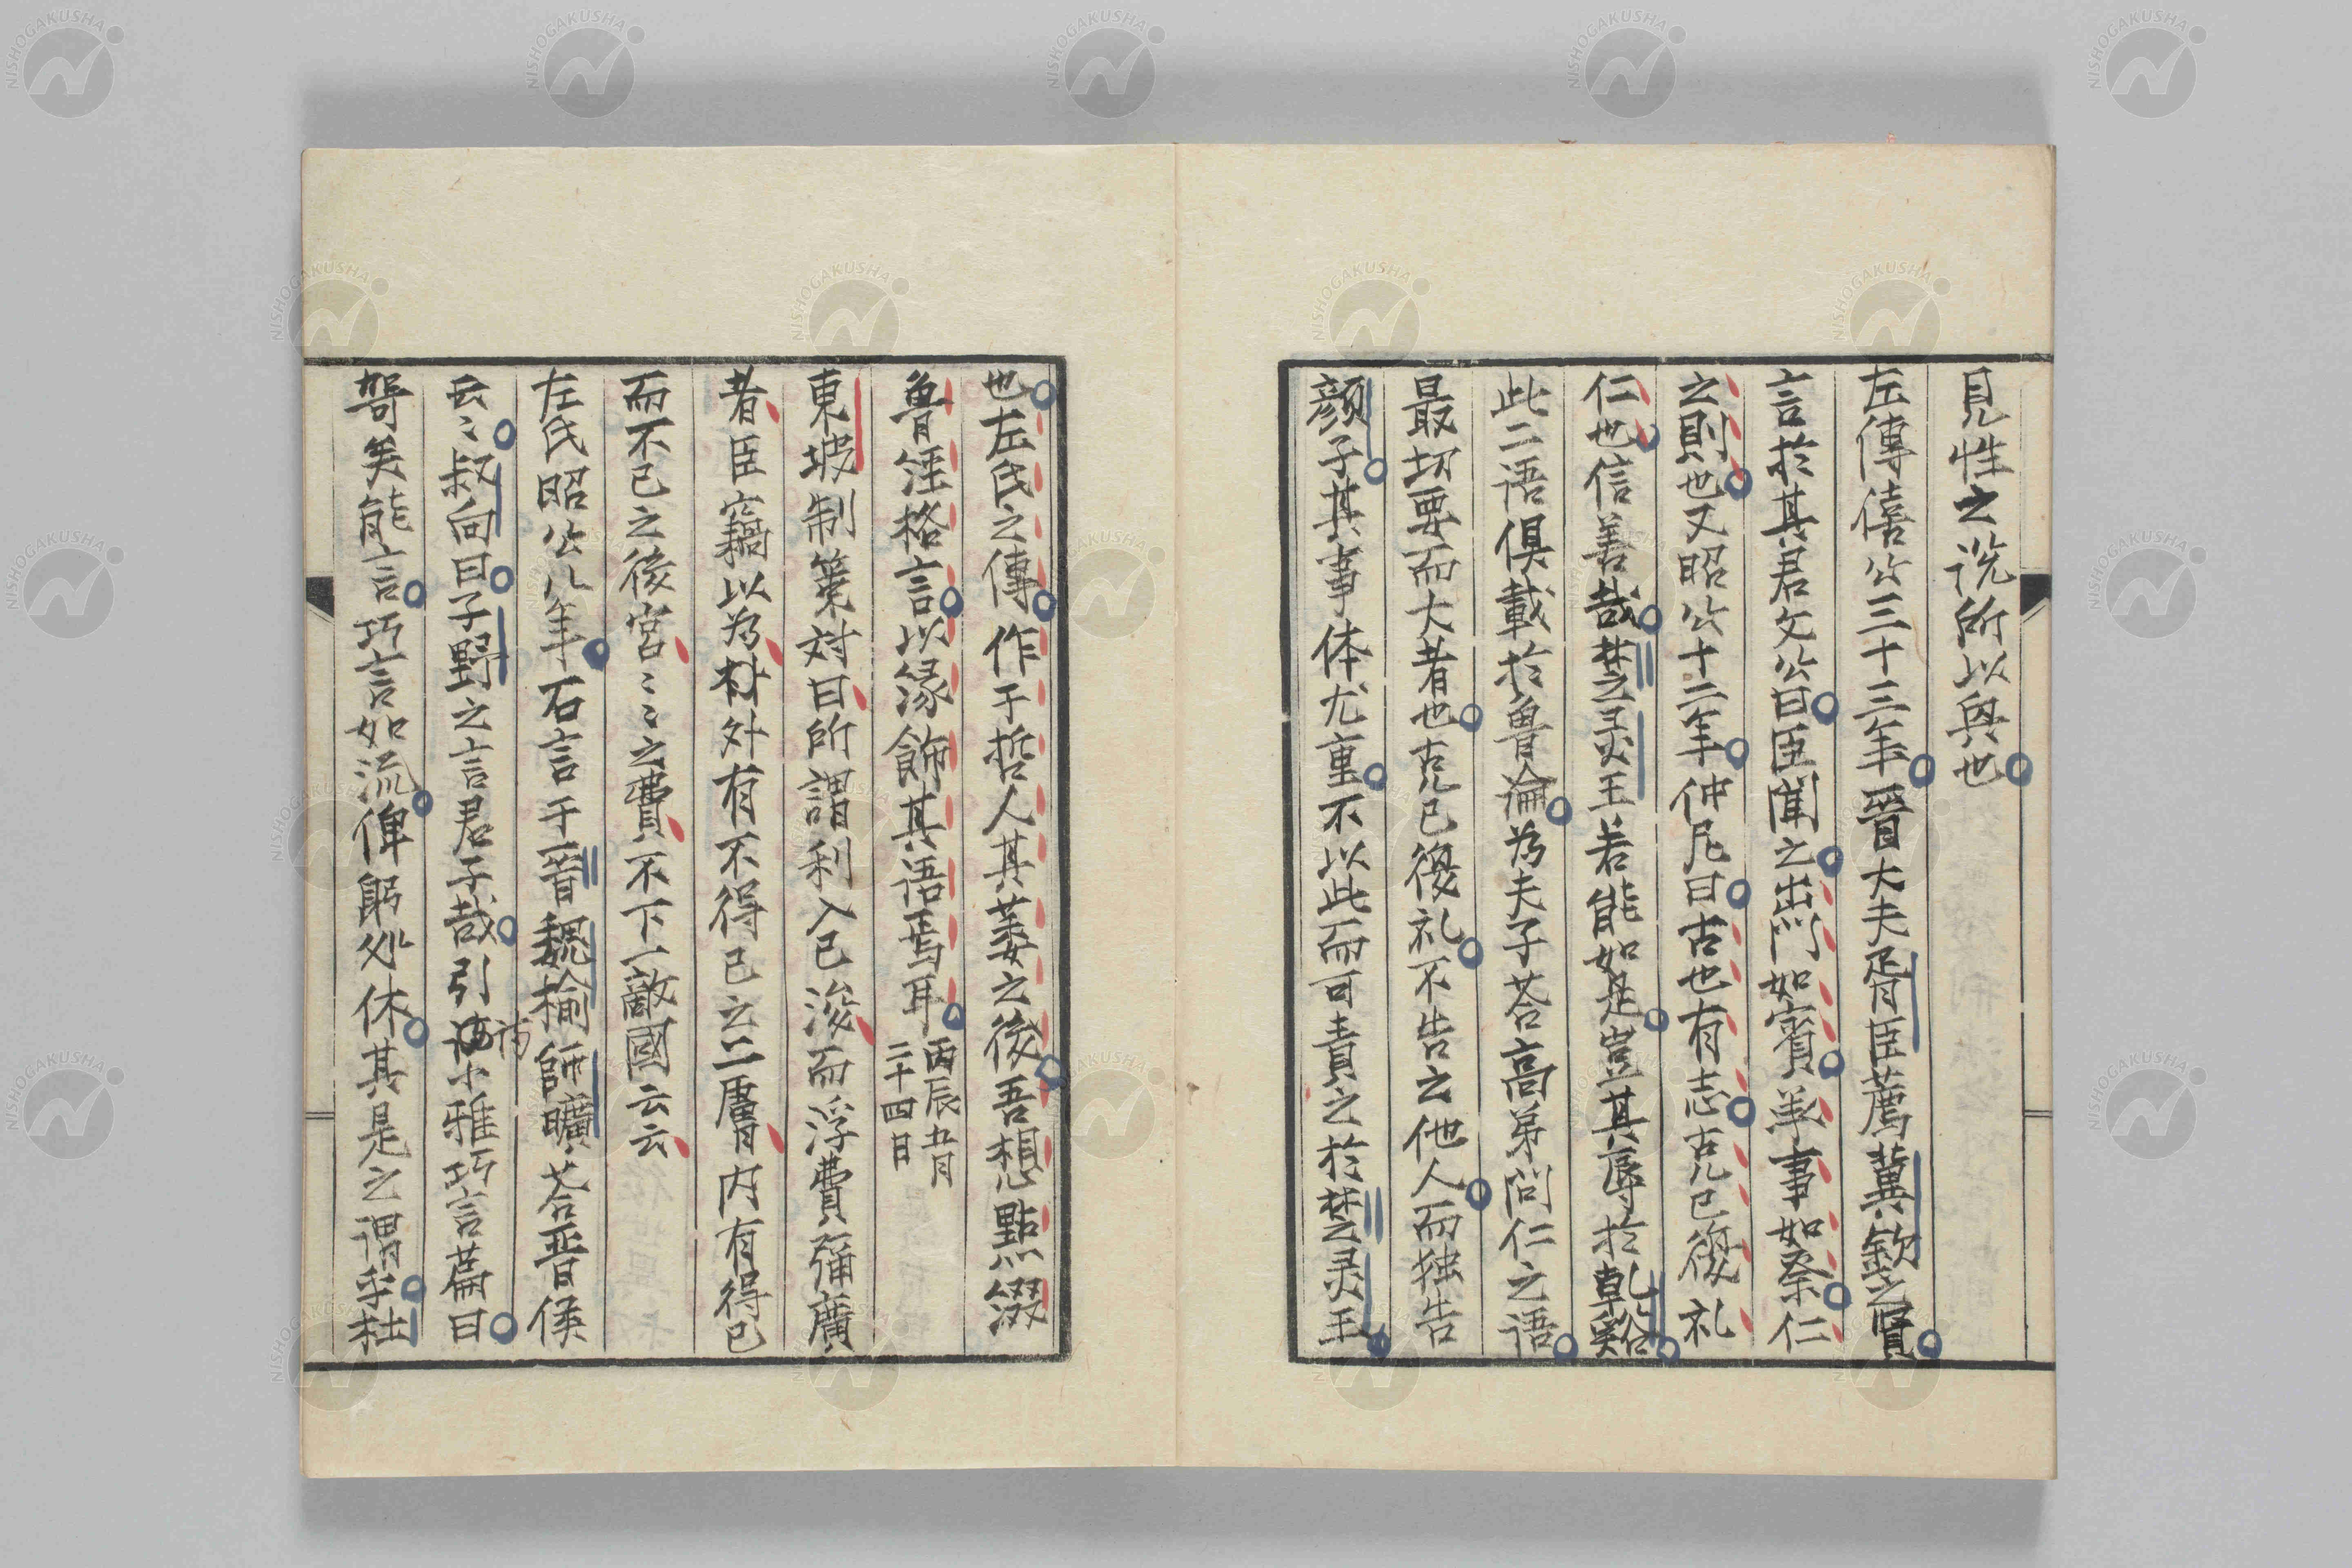 見性之説所以異也
左傳僖公三十三年晉大夫胥臣薦冀欽之賢
言於其君文公曰臣聞之出門如賓羕事如祭仁
之則也又昭公十二年仲尼曰古也有志克己復礼
仁也信善哉楚之灵王若能如是豈其辱於乾谿
此二語俱載於魯論為夫子荅高弟问仁之語
最切要而大者也克己復礼不告之他人而独告
顔子其事体尤重不以此而可責之於楚之灵王
也左氏之傳作于哲人其萎之後吾想點綴
魯浬格言以縁飾其语焉耳丙辰五月
二十四日
東坡制策対曰所謂利入已浚而浮費彌廣
者臣竊以為材外有不得已之二虜内有得已
而不已之後宮〻〻之費不下一敵國云云
左氏昭公八年石言于晉魏榆師曠荅晋侯
云〻叔向曰子野之言君子哉引诗小雅巧言篇曰
哿矣能言巧言如流俾躬処休其是之謂乎杜
NISHOGAKUSHA